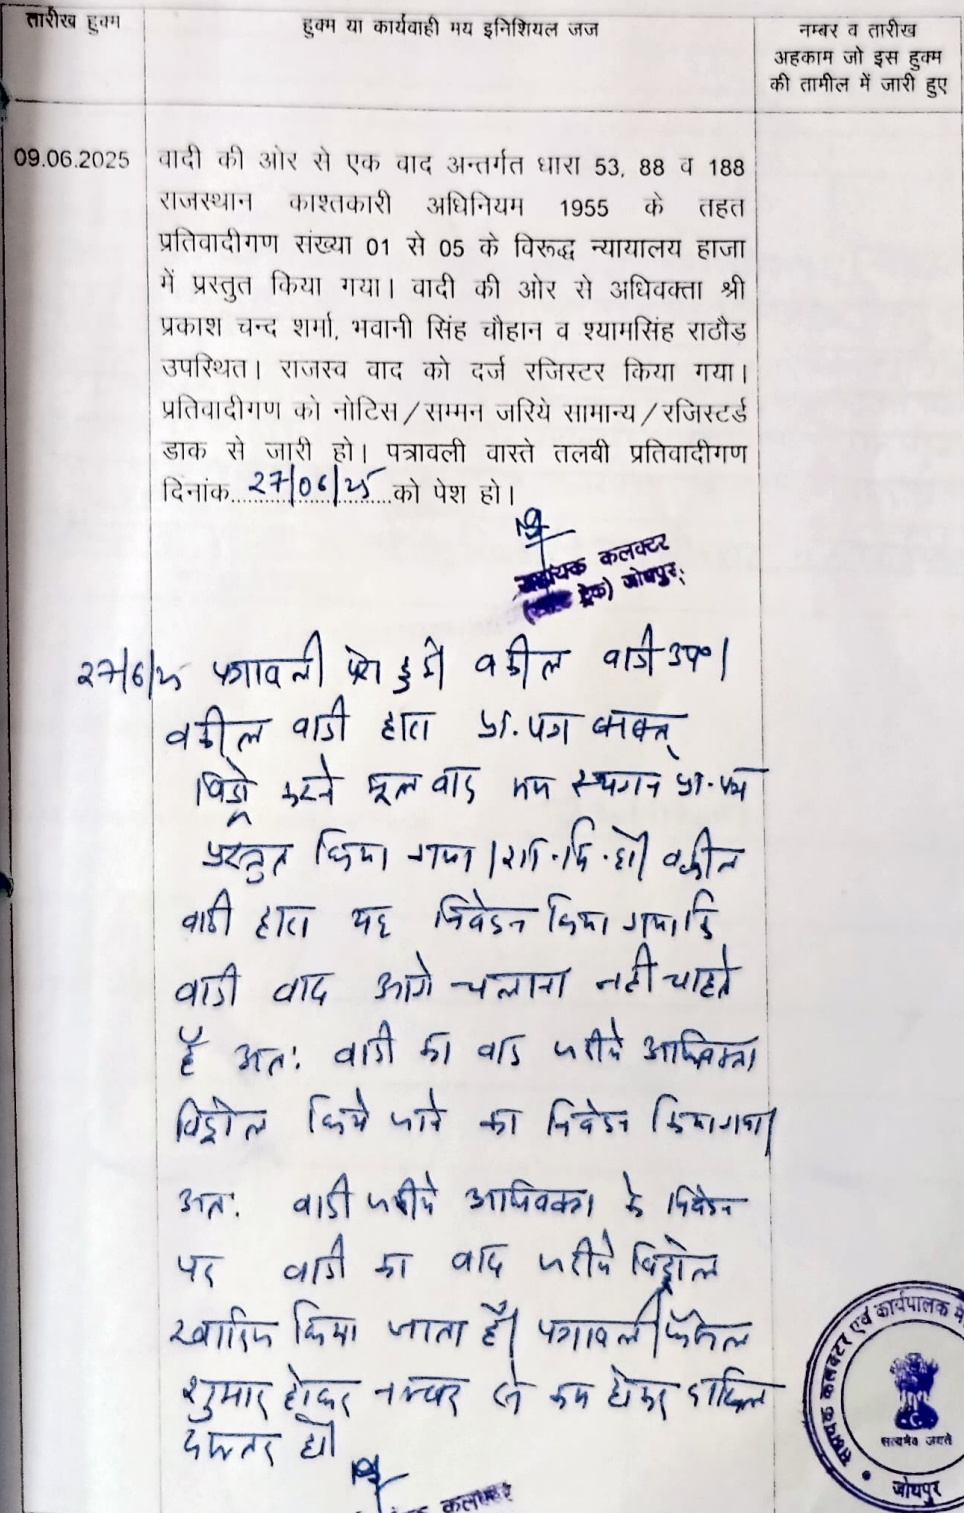 तारीख हुक्म
हुक्म या कार्यवाही मय इनिशियल जज
नम्बर व तारीख
अहकाम जो इस हुक्म
की तामील में जारी हुए
09.06.2025
वादी की ओर से एक वाद अन्तर्गत धारा 53, 88 व 188
राजस्थान काश्तकारी अधिनियम 1955 के तहत
प्रतिवादीगण संख्या 01 से 05 के विरूद्ध न्यायालय हाजा
में प्रस्तुत किया गया। वादी की ओर से अधिवक्ता श्री
प्रकाश चन्द शर्मा, भवानी सिंह चौहान व श्यामसिंह राठौड
उपस्थित। राजस्व वाद को दर्ज रजिस्टर किया गया।
प्रतिवादीगण को नोटिस/सम्मन जरिये सामान्य/रजिस्टर्ड
डाक से जारी हो। पत्रावली वास्ते तलबी प्रतिवादीगण
दिनांक 27/06/25 को पेश हो।
सहायक कलक्टर
ट्रेक) जोधपुर
27/6/25 पत्रावली पेश हुई। वकील वादी उप०।
वकील वादी द्वारा प्रा. पत्र
विड्रो करने मूल वाद मय स्थगन प्रा. पत्र
प्रस्तुत किया गया। शा.मि.हो। वकील
वादी द्वारा यह निवेदन किया गया कि
वादी वाद आगे चलाना नहीं चाहते
है अत: वादी का वाद जरीये अधिवक्ता
विड्रोल किये जाने का निवेदन किया गया।
अत: वादी जरीये अधिवक्ता के निवेदन
पर वादी का वाद जरीये विड्रोल
खारिज किया जाता है। पत्रावली फैसल
शुमार होकर नम्बर से कम होकर दाखिल
दफ्तर हो।
कलक्टर
सहायक कलक्टर एवं कार्यपालक
सत्यमेव जयते
जोधपुर